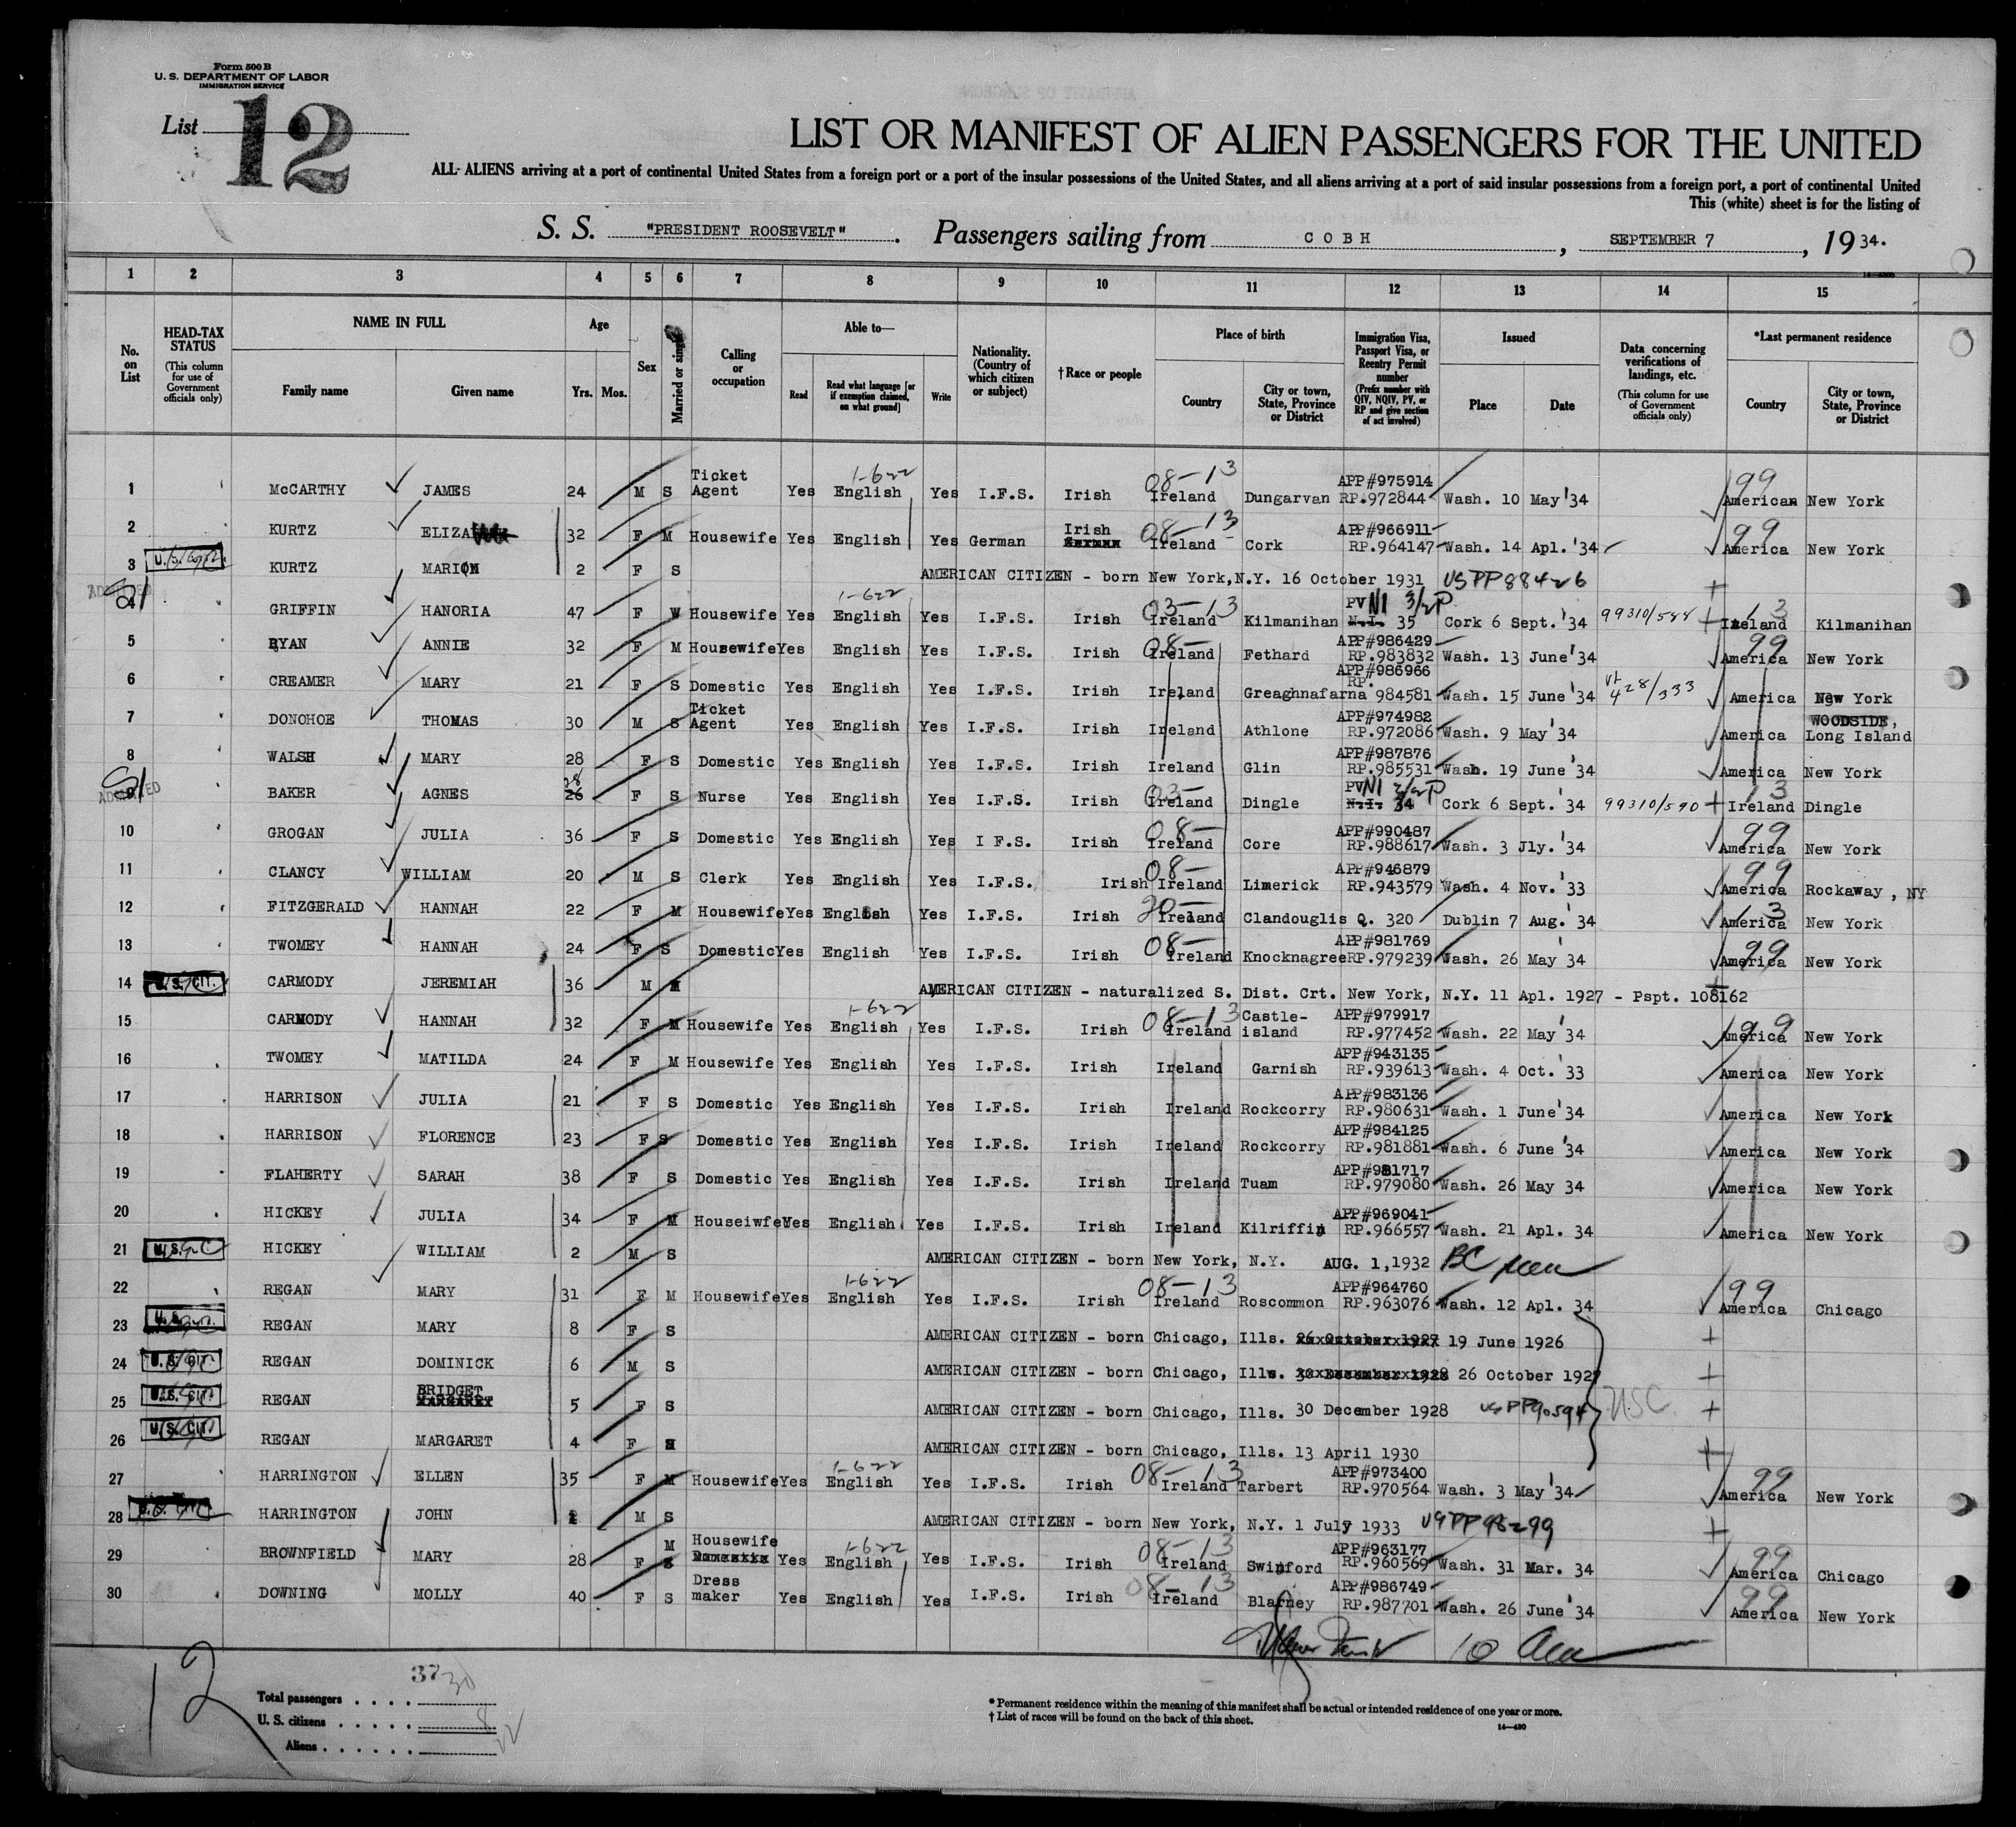 Form 500 B
U. S. DEPARTMENT OF LABOR
IMMIGRATION SERVICE
List 12
LIST OR MANIFEST OF ALIEN PASSENGERS FOR THE UNITED
ALL ALIENS arriving at a port of continental United States from a foreign port or a port of the insular possessions of the United States, and all aliens arriving at a port of said insular possessions from a foreign port, a port of continental United
This (white) sheet is for the listing of
S. S. "PRESIDENT ROOSEVELT". Passengers sailing from COBH, SEPTEMBER 7, 1934.
1 2 3 4 5 6 7 8 9 10 11 12 13 14 15
No. on List
HEAD-TAX STATUS (This column for use of Government officials only)
NAME IN FULL Family name Given name
Age Yrs. Mos.
Sex
Married or single
Calling or occupation
Able to— Read Read what language [or if exemption claimed, on what ground] Write
Nationality. (Country of which citizen or subject)
†Race or people
Place of birth Country City or town, State, Province or District
Immigration Visa, Passport Visa, or Reentry Permit number (Prefix number with QIV, NQIV, PV, or RP and give section of act involved)
Issued Place Date
Data concerning verifications of landings, etc. (This column for use of Government officials only)
*Last permanent residence Country City or town, State, Province or District
1 McCARTHY JAMES 24 M S Ticket Agent Yes English 1-622 Yes I.F.S. Irish 08-13 Ireland Dungarvan APP#975914 RP.972844 Wash. 10 May '34 99 American New York
2 KURTZ ELIZA 32 F M Housewife Yes English Yes German Irish 08-13 Ireland Cork APP#966911 RP.964147 Wash. 14 Apl. '34 99 America New York
3 KURTZ MARION 2 F S AMERICAN CITIZEN - born New York, N.Y. 16 October 1931 USPP88426
4 GRIFFIN HANORIA 47 F W Housewife Yes English 1-622 Yes I.F.S. Irish 03-13 Ireland Kilmanihan PV NI 3/2P N.I. 35 Cork 6 Sept. '34 99310/588 13 Ireland Kilmanihan
5 RYAN ANNIE 32 F M Housewife Yes English Yes I.F.S. Irish 08- Ireland Fethard APP#986429 RP.983832 Wash. 13 June '34 99 America New York
6 CREAMER MARY 21 F S Domestic Yes English Yes I.F.S. Irish Ireland Greaghnafarna APP#986966 RP. 984581 Wash. 15 June '34 428/333 America New York
7 DONOHOE THOMAS 30 M S Ticket Agent Yes English Yes I.F.S. Irish Ireland Athlone APP#974982 RP.972086 Wash. 9 May '34 America WOODSIDE, Long Island
8 WALSH MARY 28 F S Domestic Yes English Yes I.F.S. Irish Ireland Glin APP#987876 RP.985531 Wash. 19 June '34 America New York
9 ADMITTED BAKER AGNES 28 26 F S Nurse Yes English Yes I.F.S. Irish 03- Ireland Dingle PV NI 3/2P N.I. 34 Cork 6 Sept. '34 99310/590 13 Ireland Dingle
10 GROGAN JULIA 36 F S Domestic Yes English Yes I F.S. Irish 08- Ireland Core APP#990487 RP.988617 Wash. 3 Jly. '34 99 America New York
11 CLANCY WILLIAM 20 M S Clerk Yes English Yes I.F.S. Irish 08- Ireland Limerick APP#946879 RP.943579 Wash. 4 Nov. '33 99 America Rockaway, NY
12 FITZGERALD HANNAH 22 F M Housewife Yes English Yes I.F.S. Irish 20- Ireland Clandouglis Q. 320 Dublin 7 Aug. '34 13 America New York
13 TWOMEY HANNAH 24 F S Domestic Yes English Yes I.F.S. Irish 08- Ireland Knocknagree APP#981769 RP.979239 Wash. 26 May '34 99 America New York
14 U.S. CIT. CARMODY JEREMIAH 36 M M AMERICAN CITIZEN - naturalized S. Dist. Crt. New York, N.Y. 11 Apl. 1927 - Pspt. 108162
15 CARMODY HANNAH 32 F M Housewife Yes English 1-622 Yes I.F.S. Irish 08-13 Ireland Castle-island APP#979917 RP.977452 Wash. 22 May '34 99 America New York
16 TWOMEY MATILDA 24 F M Housewife Yes English Yes I.F.S. Irish Ireland Garnish APP#943135 RP.939613 Wash. 4 Oct. '33 America New York
17 HARRISON JULIA 21 F S Domestic Yes English Yes I.F.S. Irish Ireland Rockcorry APP#983136 RP.980631 Wash. 1 June '34 America New York
18 HARRISON FLORENCE 23 F S Domestic Yes English Yes I.F.S. Irish Ireland Rockcorry APP#984125 RP.981881 Wash. 6 June '34 America New York
19 FLAHERTY SARAH 38 F S Domestic Yes English Yes I.F.S. Irish Ireland Tuam APP#981717 RP.979080 Wash. 26 May 34 America New York
20 HICKEY JULIA 34 F M Houseiwfe Yes English Yes I.F.S. Irish Ireland Kilriffin APP#969041 RP.966557 Wash. 21 Apl. 34 America New York
21 HICKEY WILLIAM 2 M S AMERICAN CITIZEN - born New York, N.Y. AUG. 1, 1932 BC seen
22 REGAN MARY 31 F M Housewife Yes English 1-622 Yes I.F.S. Irish 08-13 Ireland Roscommon APP#964760 RP.963076 Wash. 12 Apl. 34 99 America Chicago
23 REGAN MARY 8 F S AMERICAN CITIZEN - born Chicago, Ills. 26 October 1927 19 June 1926
24 U.S. CIT. REGAN DOMINICK 6 M S AMERICAN CITIZEN - born Chicago, Ills. 30 December 1928 26 October 1927
25 U.S. CIT. REGAN BRIDGET MARGARET 5 F S AMERICAN CITIZEN - born Chicago, Ills. 30 December 1928 USPP90594 USC.
26 U.S. CIT. REGAN MARGARET 4 F S AMERICAN CITIZEN - born Chicago, Ills. 13 April 1930
27 HARRINGTON ELLEN 35 F M Housewife Yes English 1-622 Yes I.F.S. Irish 08-13 Ireland Tarbert APP#973400 RP.970564 Wash. 3 May '34 99 America New York
28 HARRINGTON JOHN M S AMERICAN CITIZEN - born New York, N.Y. 1 July 1933 USPP98299
29 BROWNFIELD MARY 28 F M Housewife Domestic Yes English 1-622 Yes I.F.S. Irish 08-13 Ireland Swinford APP#963177 RP.960569 Wash. 31 Mar. 34 99 America Chicago
30 DOWNING MOLLY 40 F S Dress maker Yes English Yes I.F.S. Irish 08-13 Ireland Blarney APP#986749 RP.987701 Wash. 26 June '34 99 America New York
12
Total passengers . . . . 37 30
U. S. citizens . . . . . 8
Aliens . . . . . . 22
* Permanent residence within the meaning of this manifest shall be actual or intended residence of one year or more.
† List of races will be found on the back of this sheet.
14—430